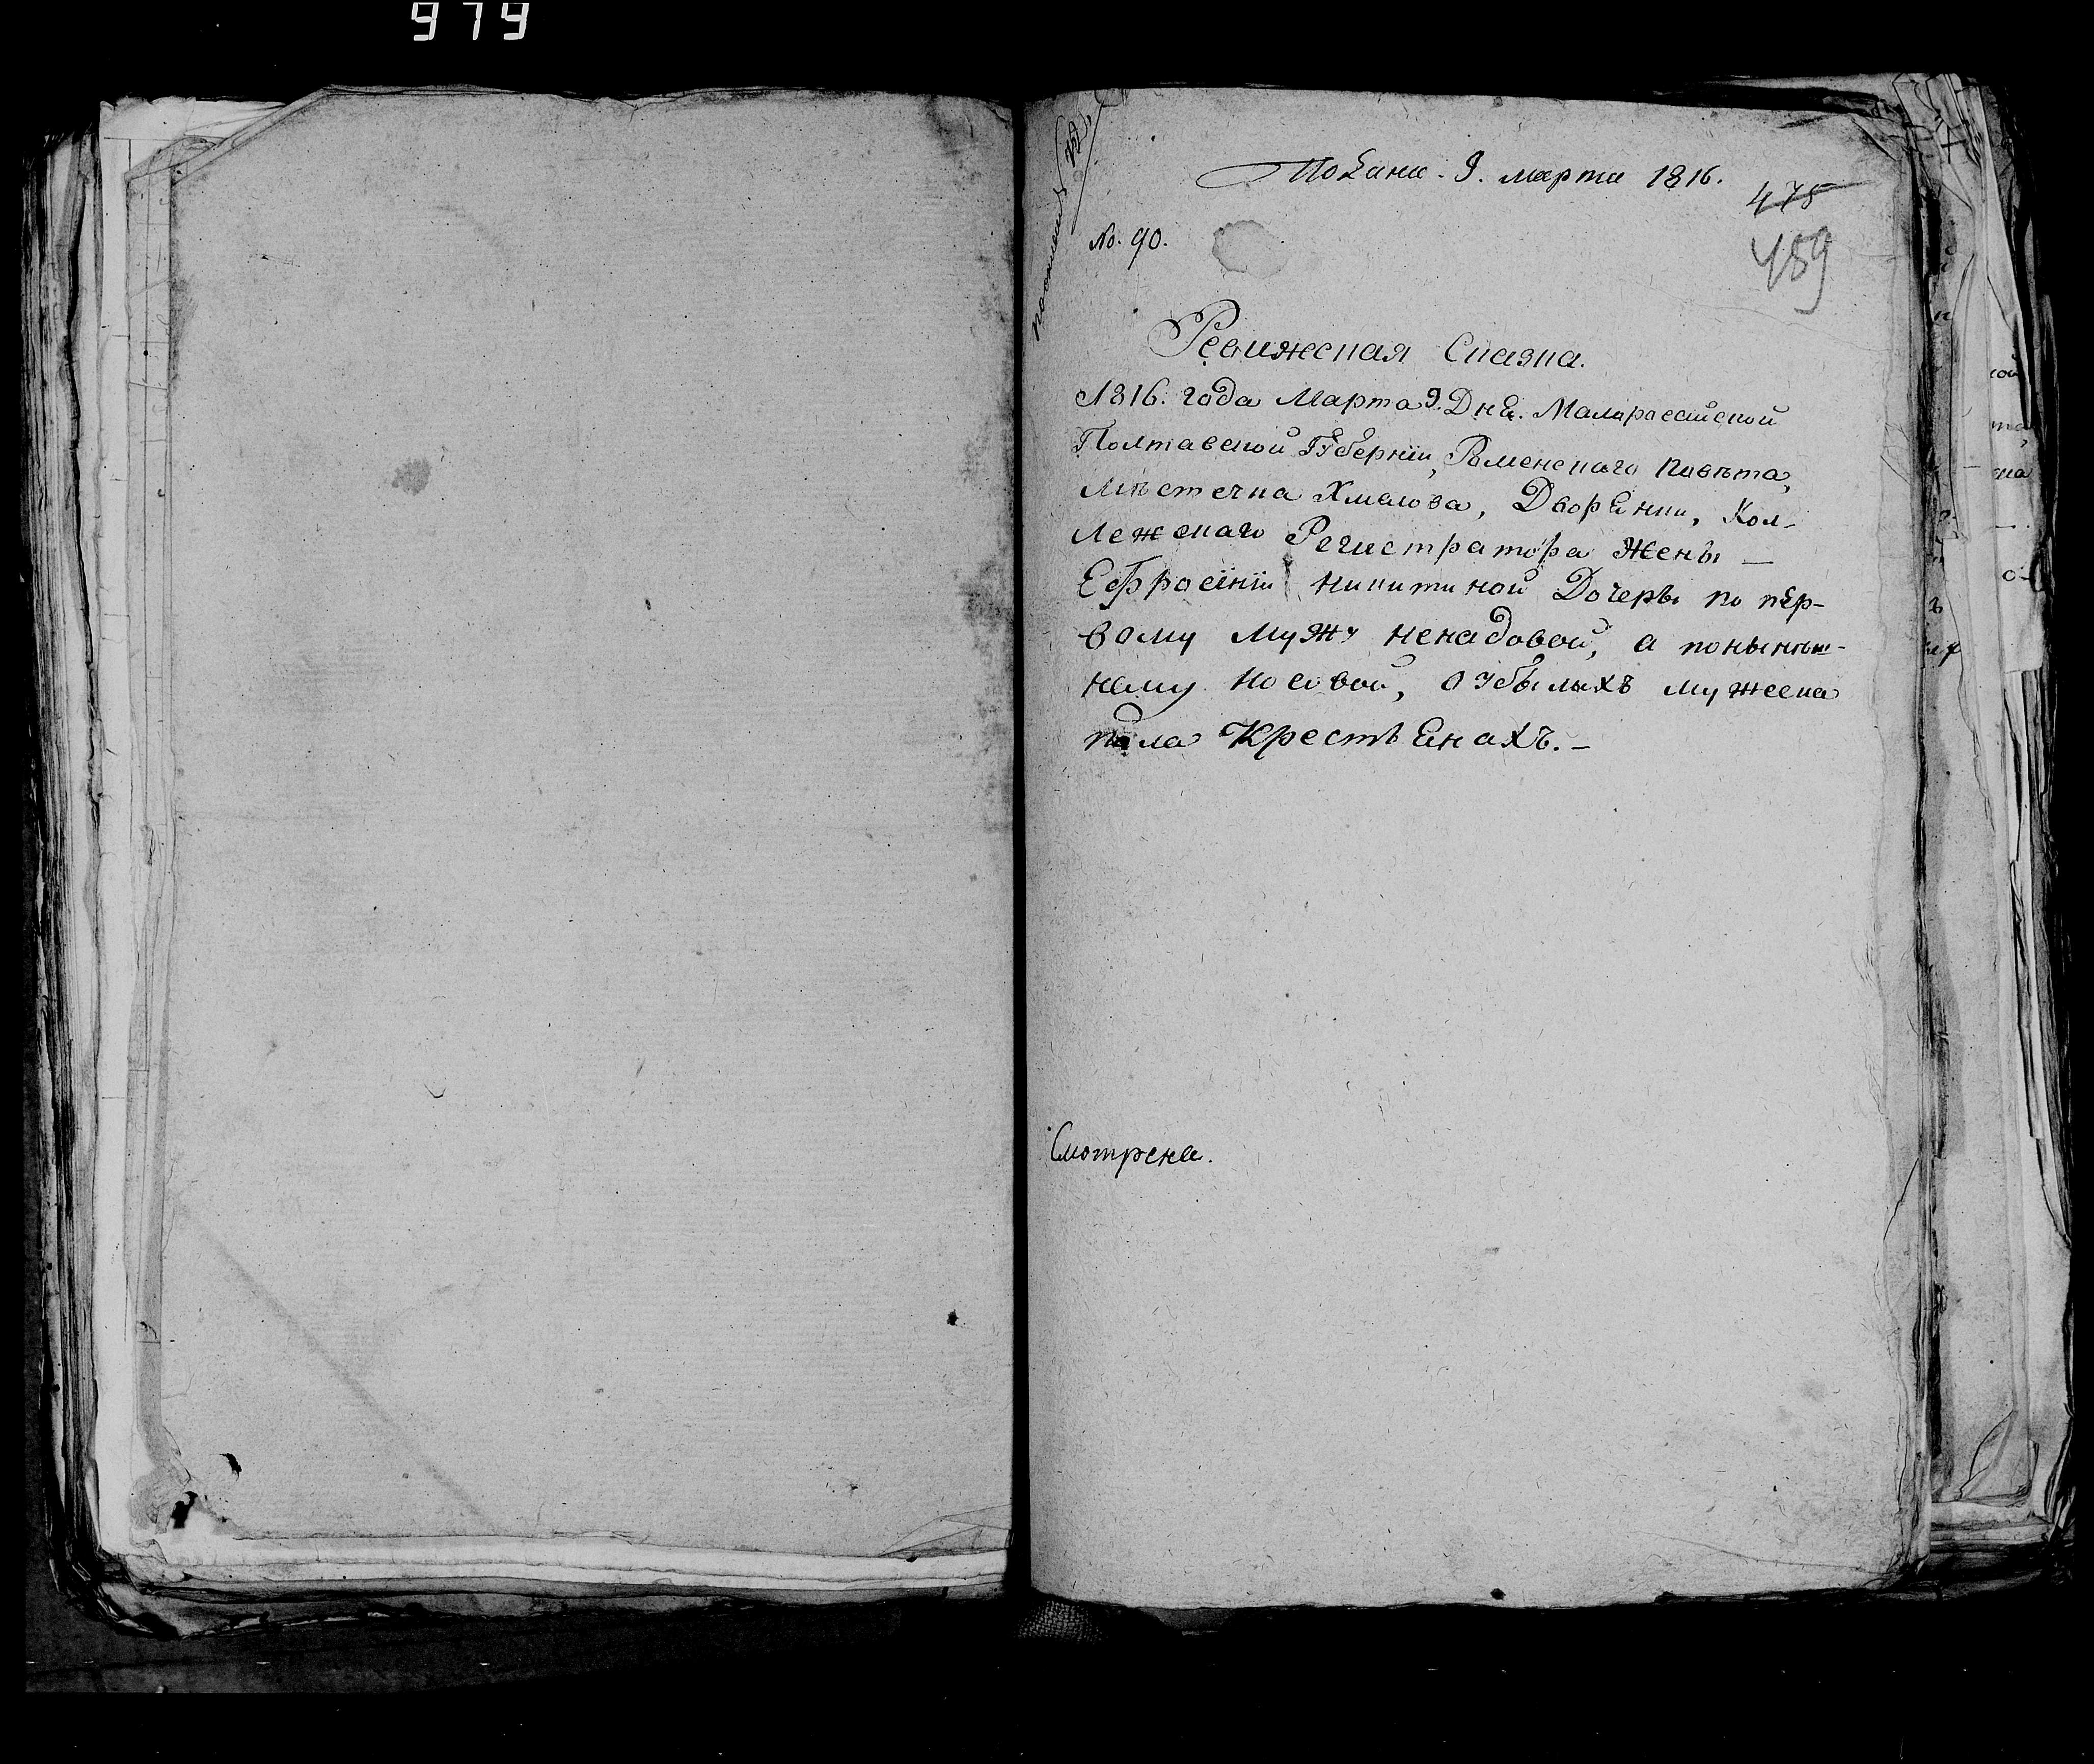 979
Подана. 9. марта 1816.
475
No. 90.
489
Ревижская Сказка.
1816. года Марта 9. Дня. Малороссійской
Полтавской Губерніи, Роменскаго повѣта,
Мѣстечка Хмелова, Дворянки, Кол-
лежскаго Регистратора Жены —
Ефросініи Никитиной Дочеры по пер-
вому мужу Ненадовой, а понынѣш-
нему Носовой, озбылыхъ мужеска
пола Крестьянахъ. —
Смотрена.